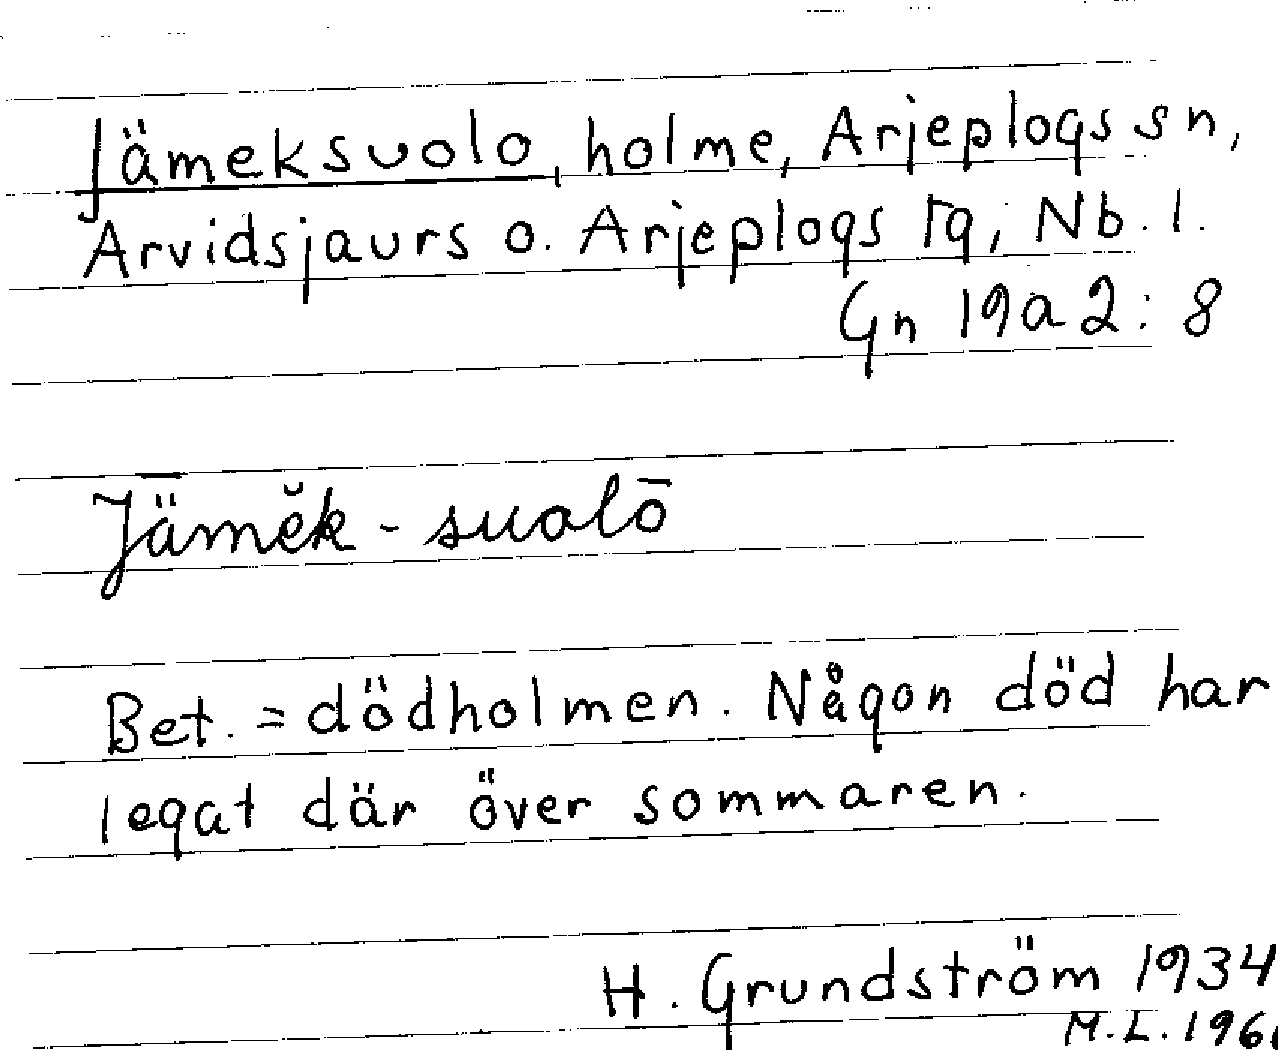 Jämeksuolo, holme, Arjeplogs sn,
Arvidsjaurs o. Arjeplogs tg, Nb. l.
Gn 19a2:8
Jämĕk-suolō
Bet. = dödholmen. Någon död har
legat där över sommaren.
H. Grundström 1934
M.L.